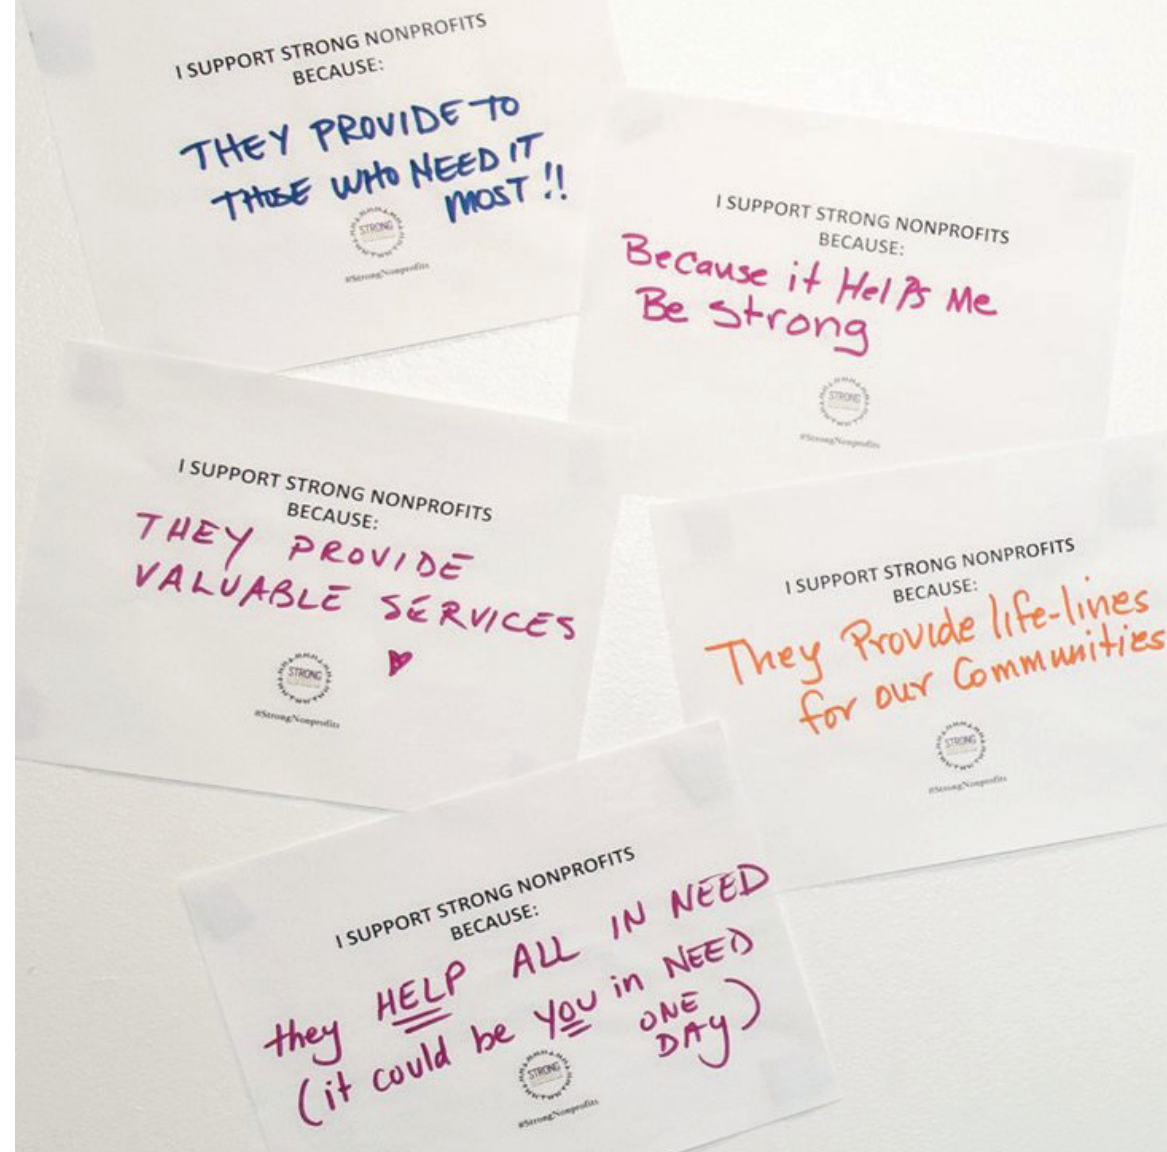 I SUPPORT STRONG NONPROFITS
BECAUSE:
THEY PROVIDE TO
THOSE WHO NEED IT
MOST!!
STRONG
#StrongNonprofits
I SUPPORT STRONG NONPROFITS
BECAUSE:
Because it Helps Me
Be Strong
STRONG
#StrongNonprofits
I SUPPORT STRONG NONPROFITS
BECAUSE:
THEY PROVIDE
VALUABLE SERVICES
STRONG
#StrongNonprofits
I SUPPORT STRONG NONPROFITS
BECAUSE:
They Provide life-lines
for our Communities
STRONG
#StrongNonprofits
I SUPPORT STRONG NONPROFITS
BECAUSE:
they HELP ALL IN NEED
(it could be YOU in NEED
ONE
DAY)
STRONG
#StrongNonprofits